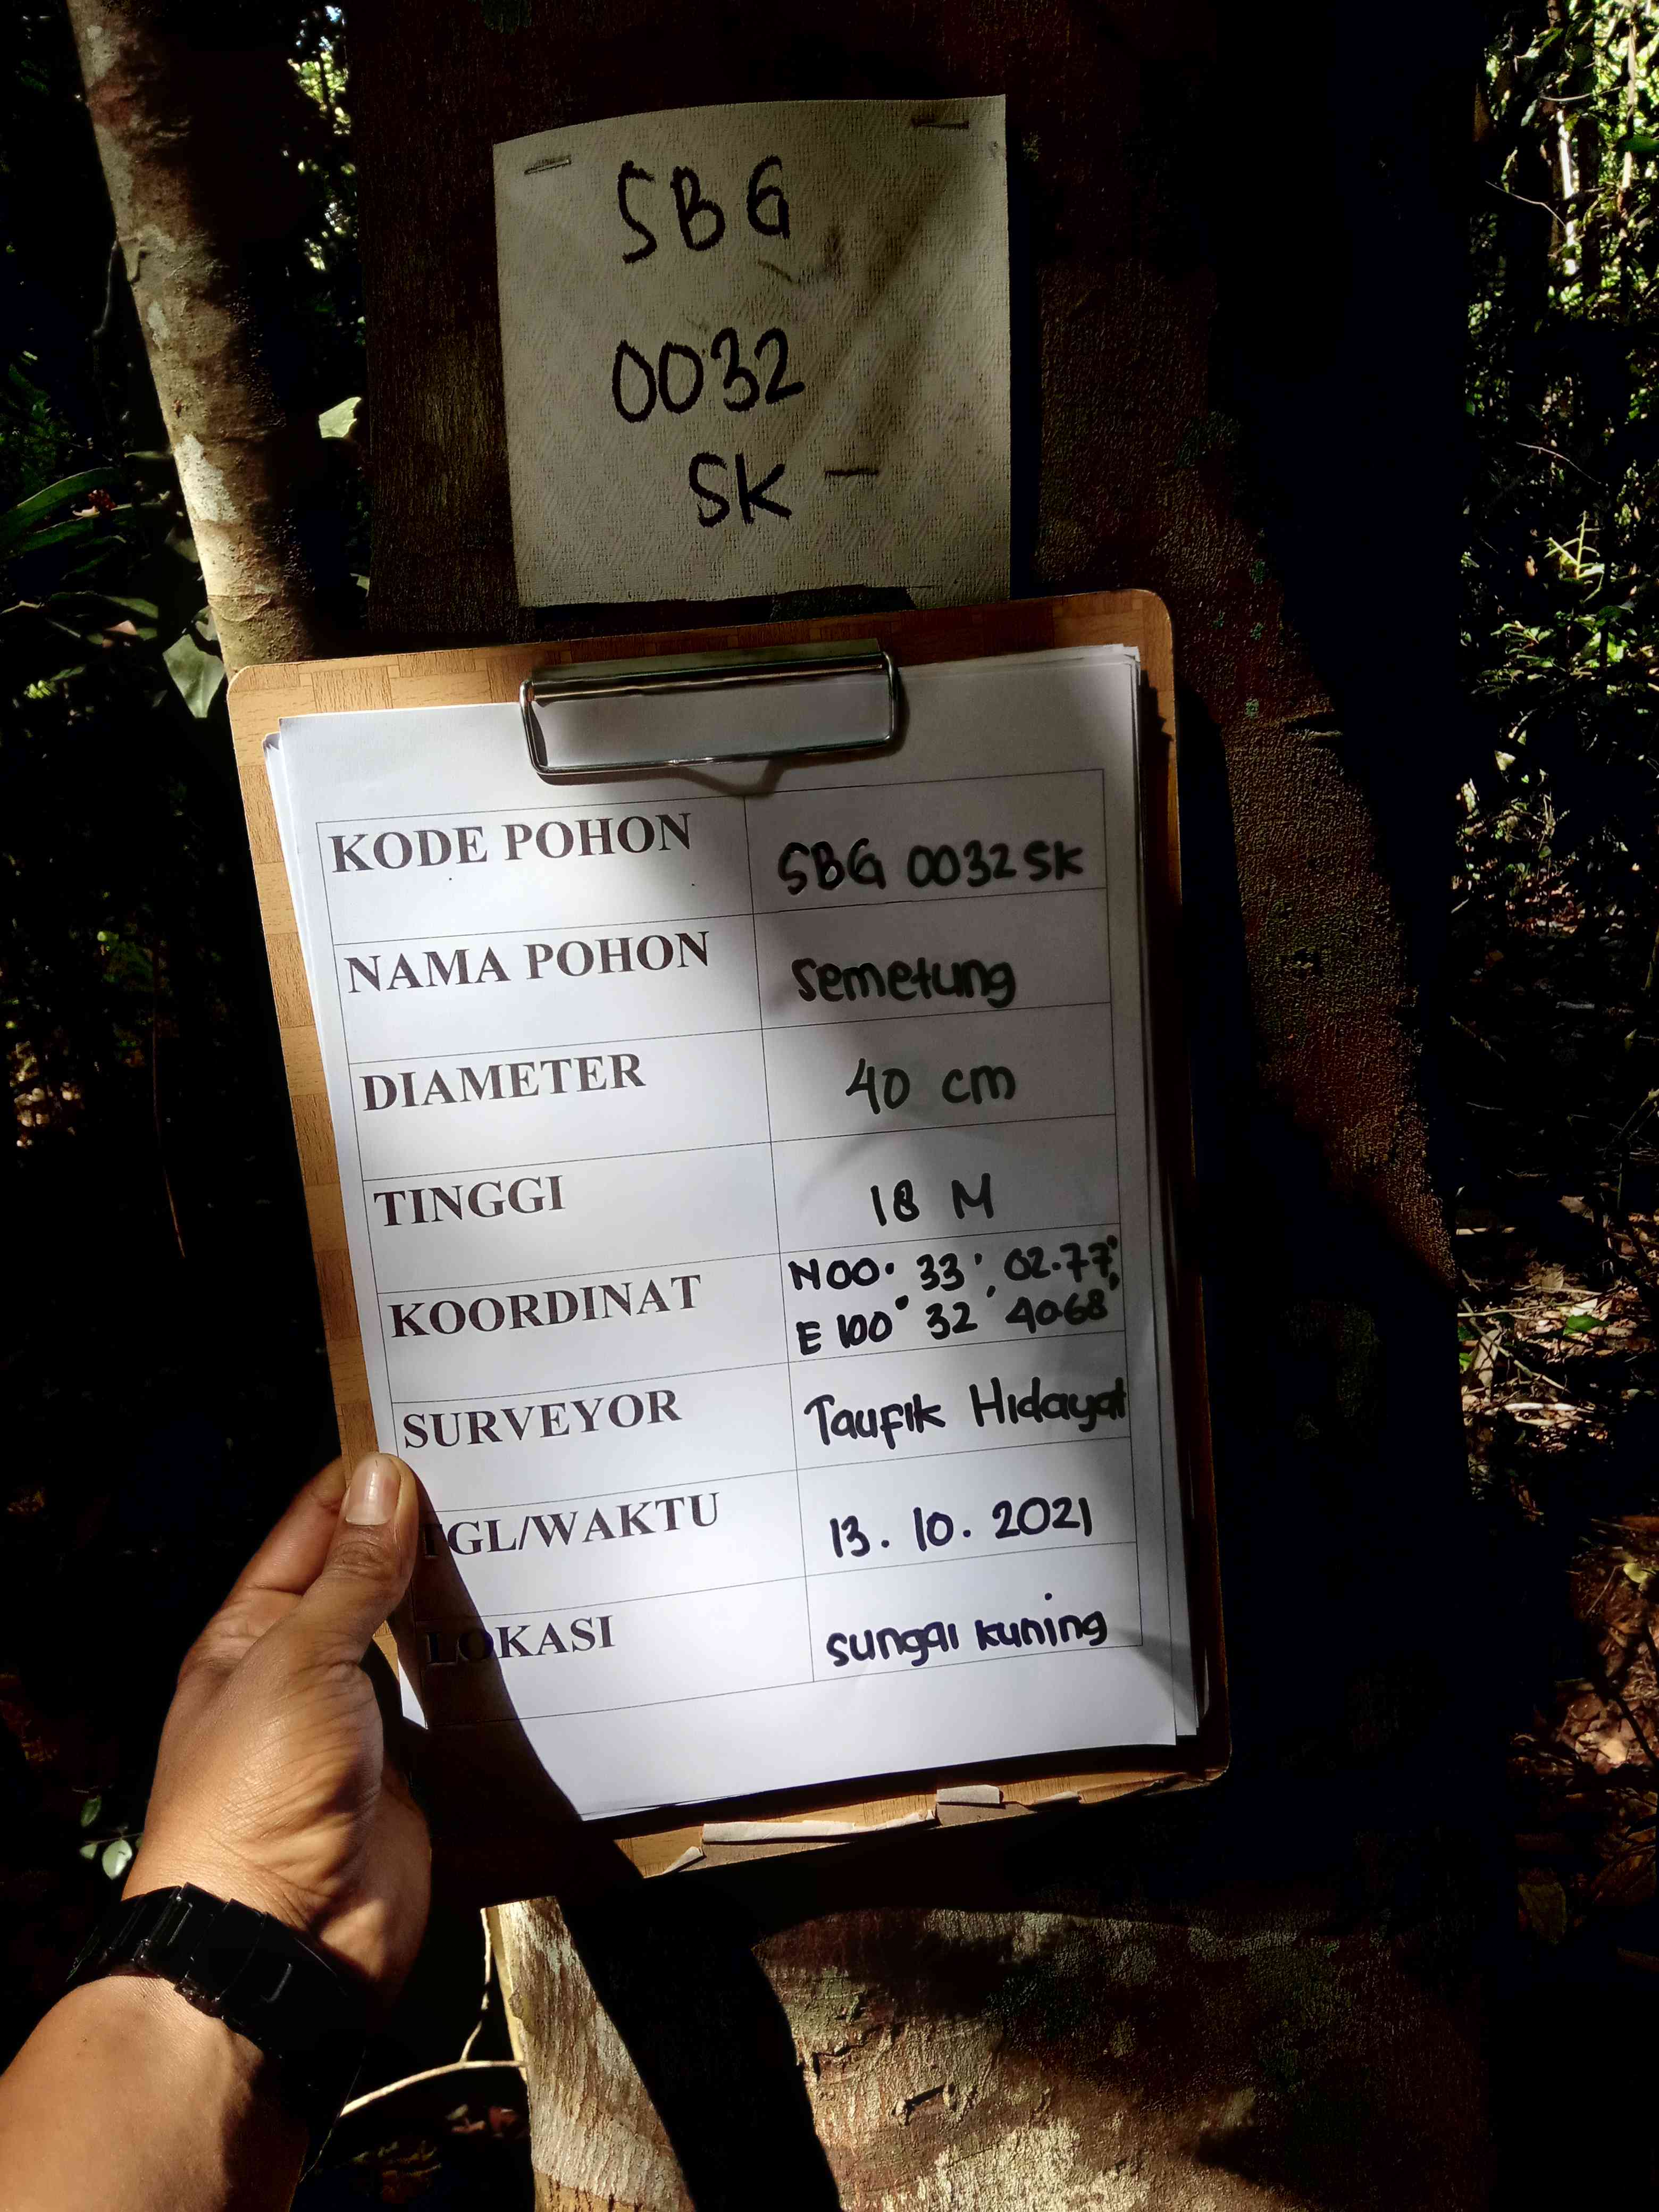 SBG
0032
SK
KODE POHON SBG 0032 SK
NAMA POHON Semetung
DIAMETER 40 cm
TINGGI 18 M
KOORDINAT N 00° 33' 02.77"
E 100° 32' 40.68"
SURVEYOR Taufik Hidayat
TGL/WAKTU 13. 10. 2021
LOKASI Sungai kuning